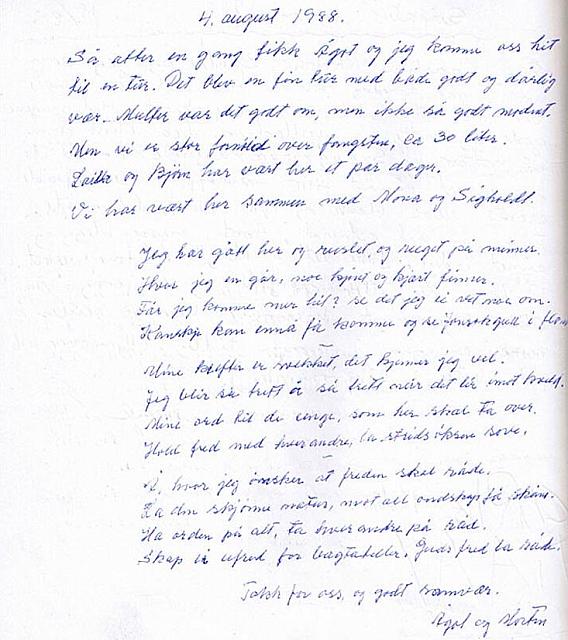 4. august 1988.
Så atter en gang fikk Ågot og jeg komme oss hit
til en tur. Det blev en fin tur med både godt og dårlig
vær. Multer var det godt om, men ikke så godt modnet.
Men vi er stor fornöid over fangsten, ca 30 liter.
og Björn har vært her et par dager.
Vi har vært her sammen med Mona og Sigholdt.
Jeg har gått her og ruslet, og ruget på minner.
Hvor jeg en går, noe kjent og kjært finner.
Får jeg komme mer hit? se det jeg ei vet noe om.
Kanskje kan ennå få komme og se i
Mine krefter er svekket, det kjenner jeg vel.
Jeg blir så trett å så trett når det lir imot kveld.
Mine ord til de unge, som her skal ta over.
Hold fred med hverandre, la stridsöksen sove.
Å, hvor jeg önsker at freden skal råde.
La den skjönne natur, mot all ondskap få skåne.
Ha orden på alt, ta hverandre på råd.
Skap ei ufred for bagateller. Guds fred la råde.
Takk for oss, og godt samvær.
Ågot og